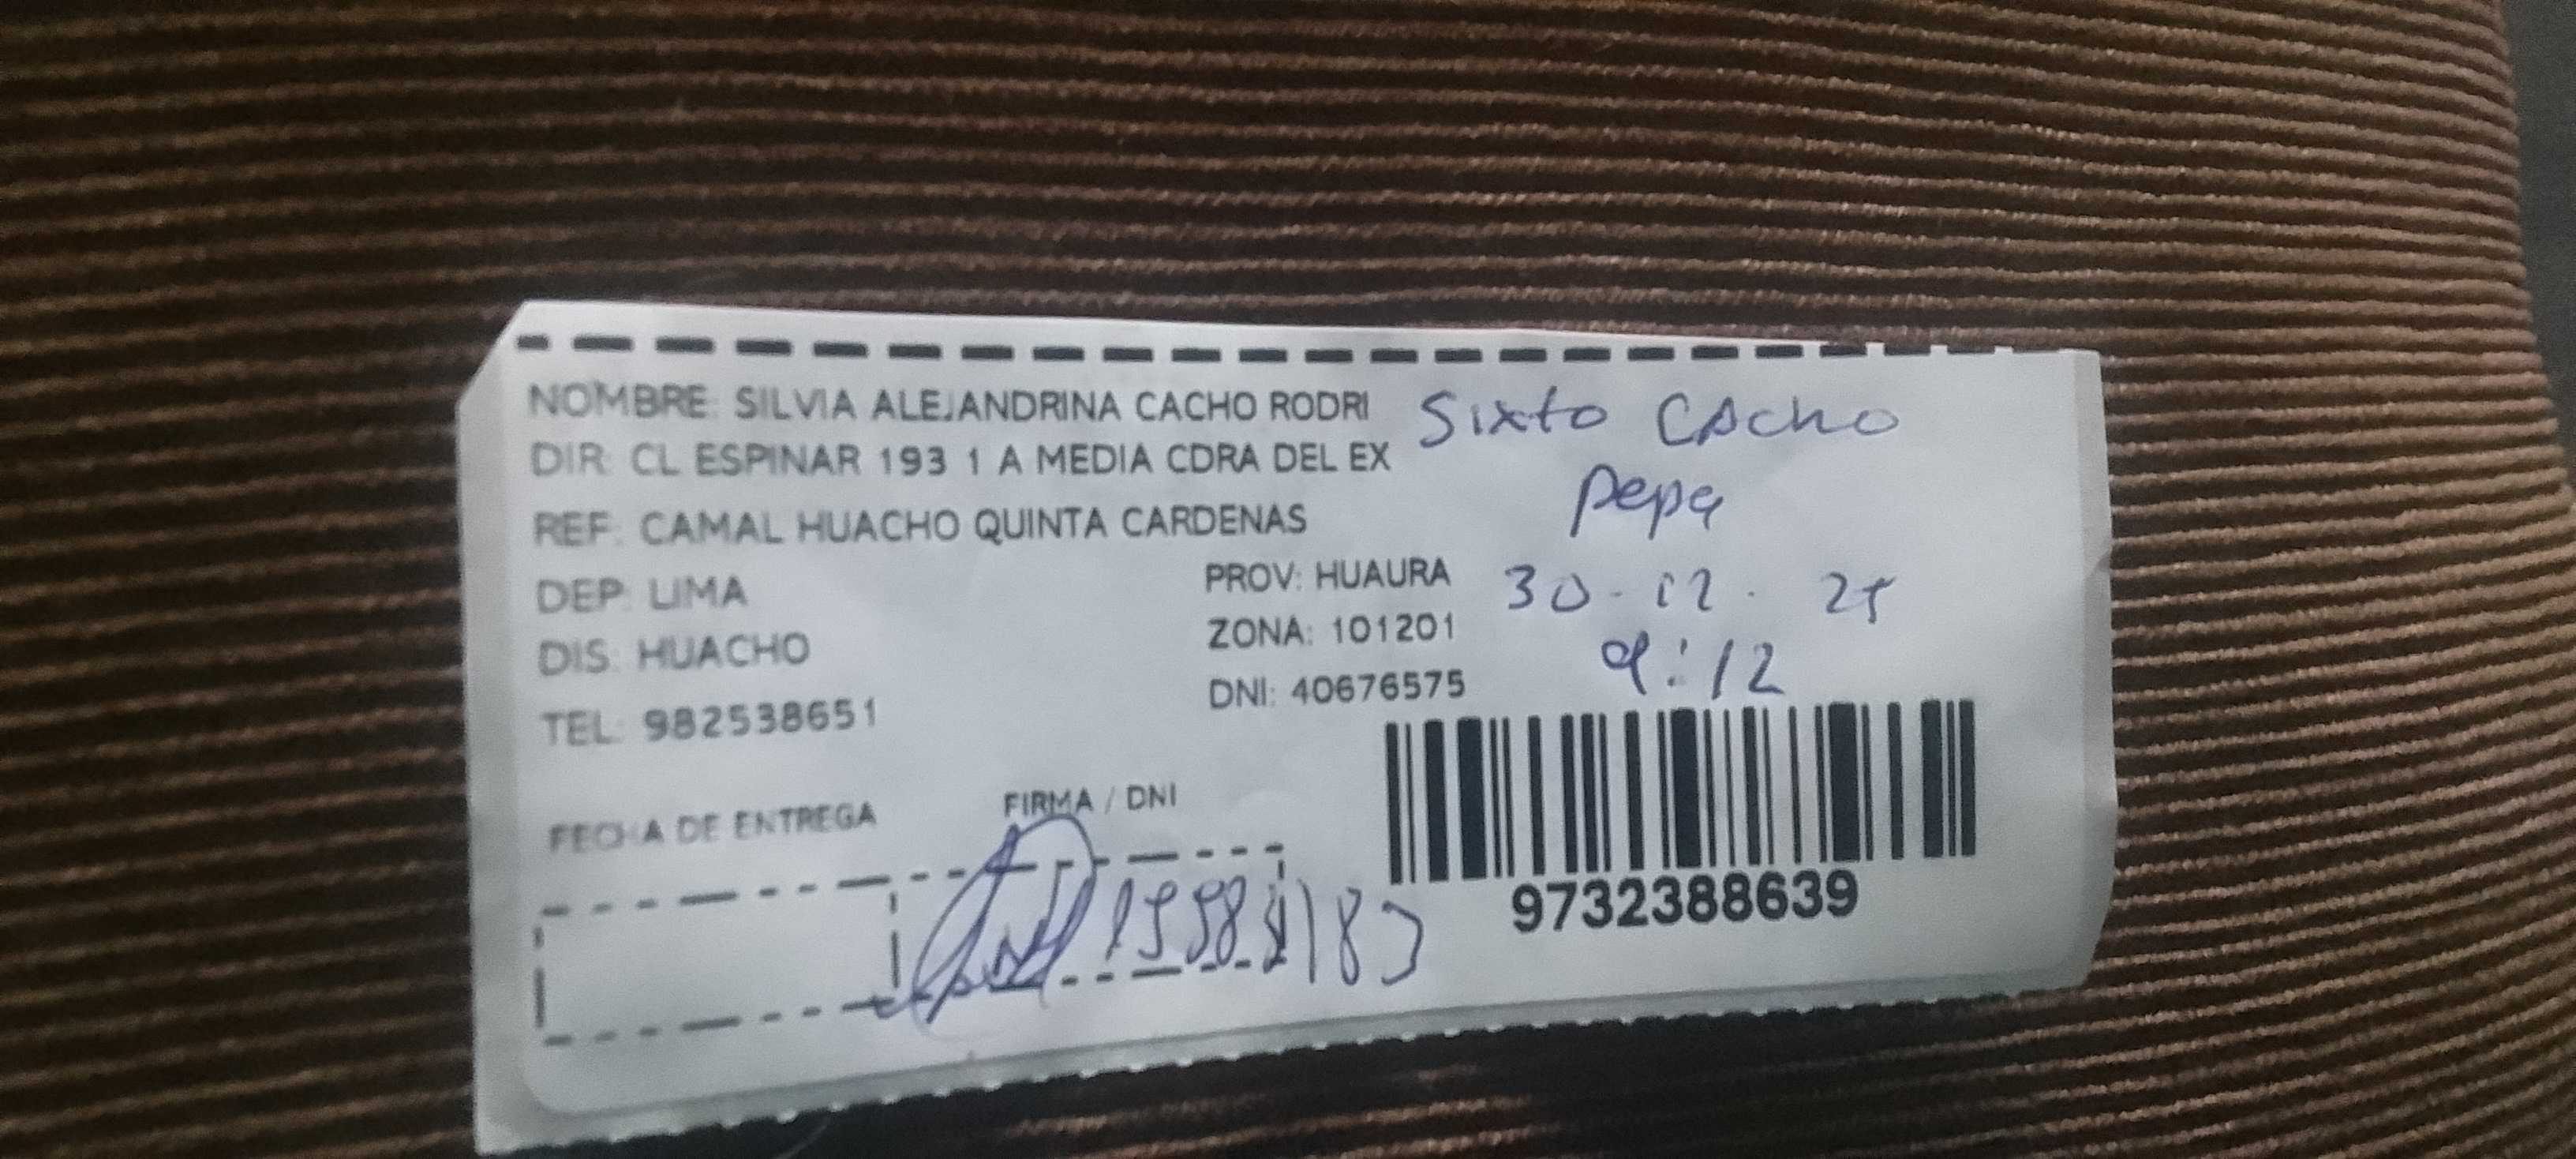 NOMBRE: SILVIA ALEJANDRINA CACHO RODRI
Sixto CAcho
DIR: CL ESPINAR 193 1 A MEDIA CDRA DEL EX
pepa
REF: CAMAL HUACHO QUINTA CARDENAS
DEP: LIMA
PROV: HUAURA
30-12. 25
DIS: HUACHO
ZONA: 101201
9:12
TEL: 982538651
DNI: 40676575
FECHA DE ENTREGA
FIRMA / DNI
9732388639